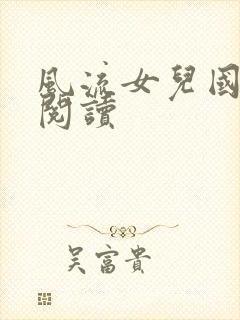 風流女兒國
閱讀
吴富貴